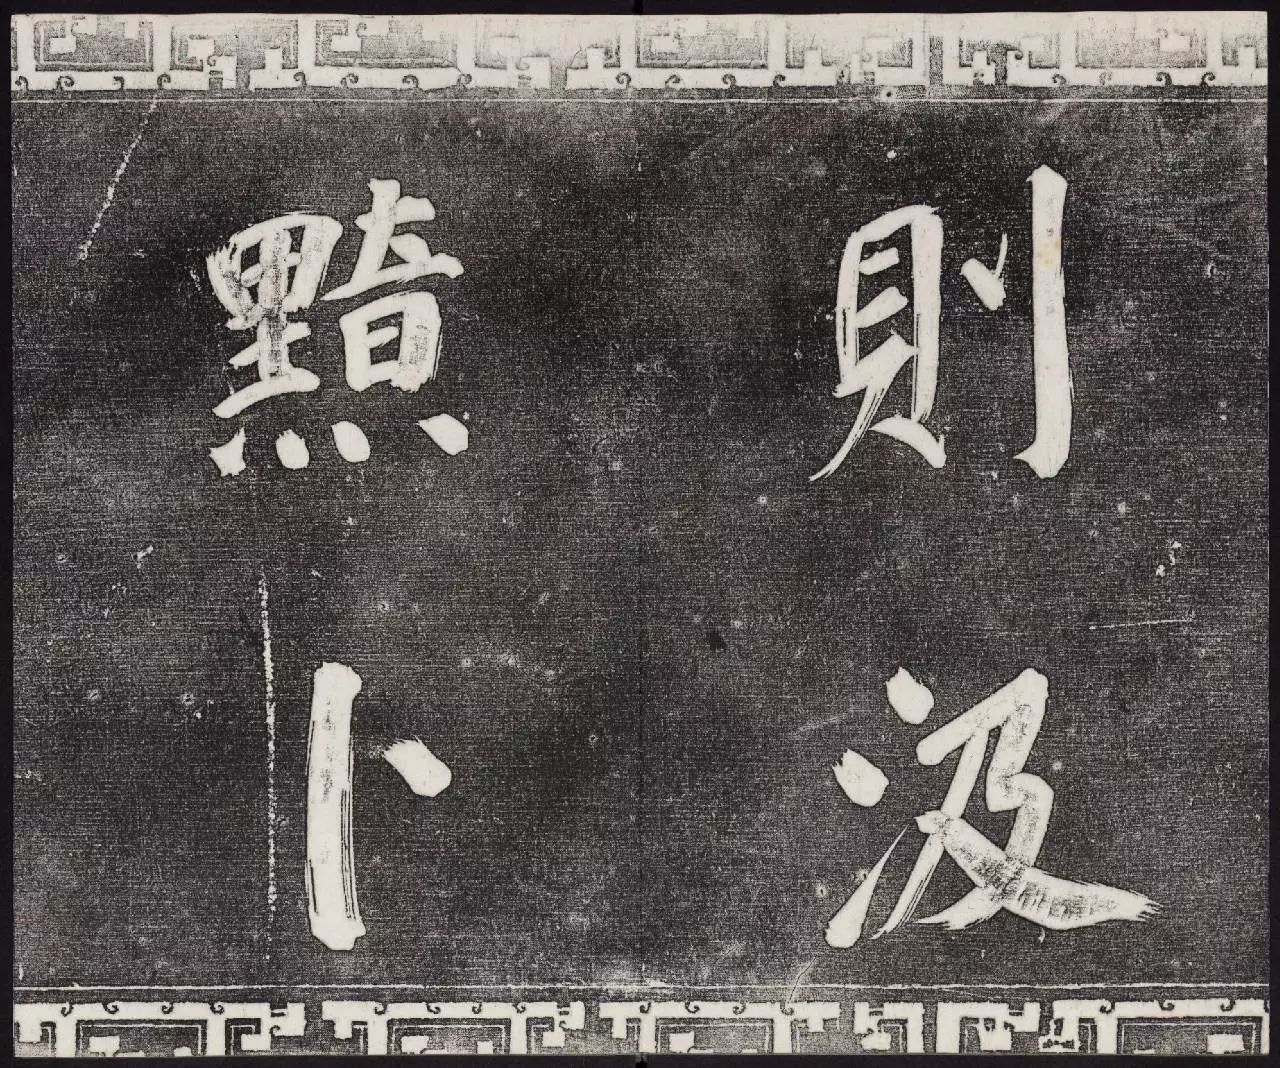 則汲
黯卜